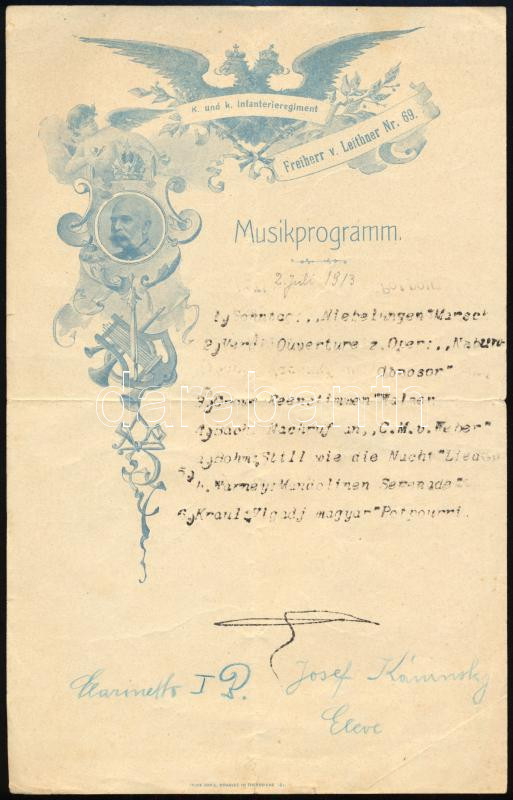 K. und k. Infanterieregiment
Freiherr v. Leithner Nr. 69.
Musikprogramm.
2. Juli 1913
1) „Niebelungen" Marsch
2) Verdi: Ouverture z. Oper: „Nabuco-
3) Walzer
4) Bach Nachruf an „C.M.v. Weber"
Bohm: Still wie die Nacht" Lied
5) Mandolinen Serenade"
6) Kraul: Vigadj magyar" Potpourri.
Clarinetto I B.
Josef
Eleve
darabanth